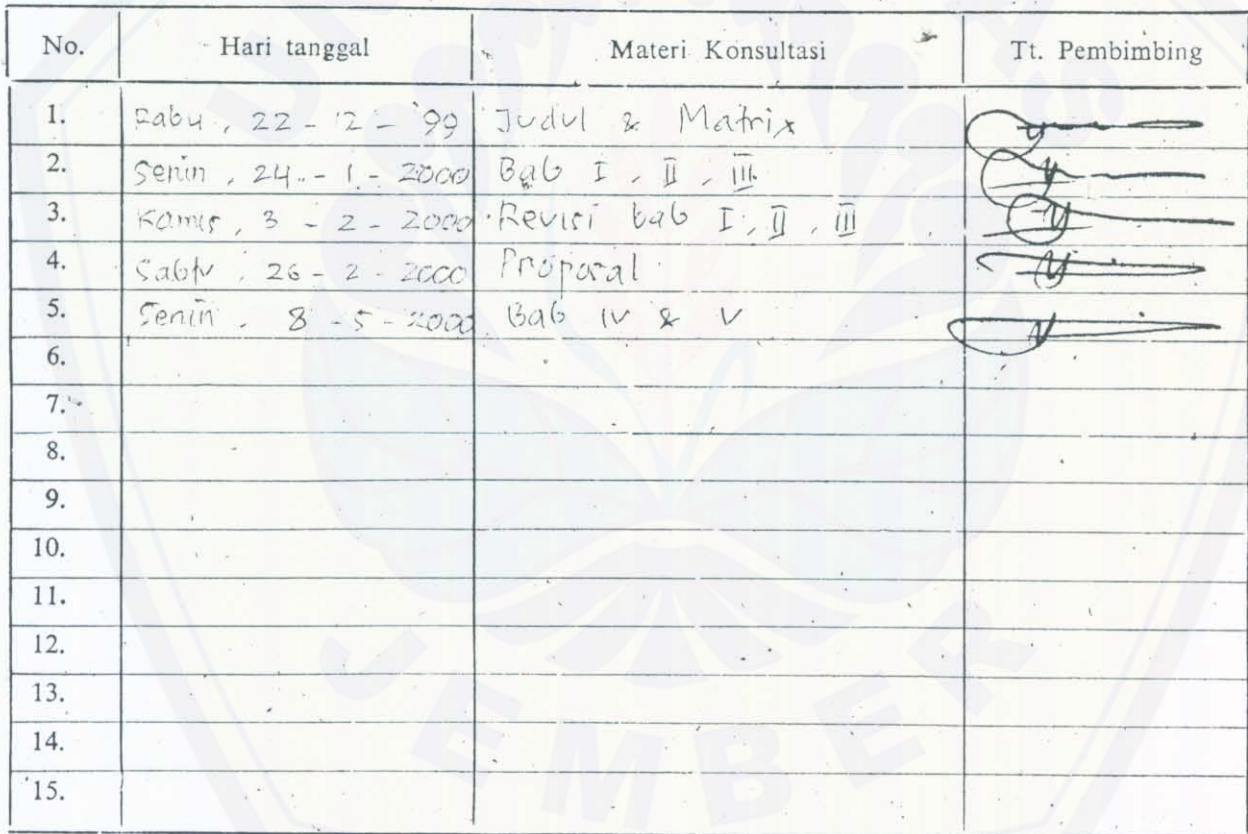 No. Hari tanggal Materi Konsultasi Tt. Pembimbing
1. Rabu, 22 - 12 - '99 Judul & Matrix
2. Senin, 24 - 1 - 2000 Bab I, II, III
3. Kamis, 3 - 2 - 2000 Revisi bab I, II, III
4. Sabtu, 26 - 2 - 2000 Proposal
5. Senin, 8 - 5 - 2000 Bab IV & V
6.
7.
8.
9.
10.
11.
12.
13.
14.
15.
JEMBER